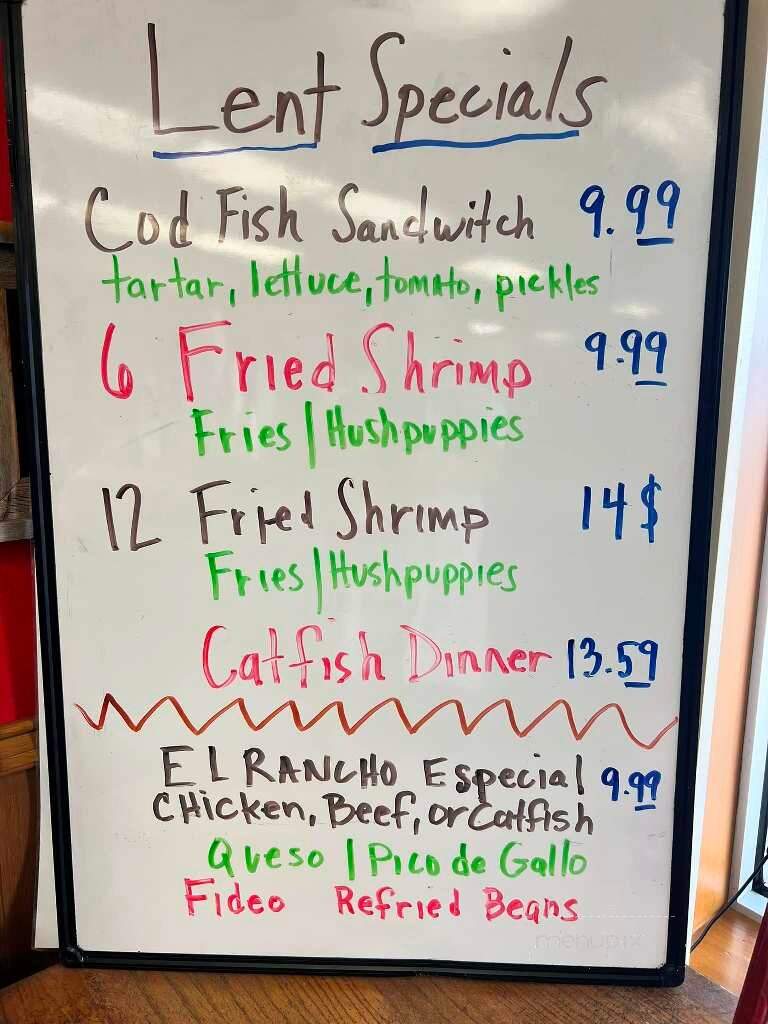 Lent Specials
Cod Fish Sandwitch 9.99
tartar, lettuce, tomato, pickles
6 Fried Shrimp 9.99
Fries | Hushpuppies
12 Fried Shrimp 14$
Fries | Hushpuppies
Catfish Dinner 13.59
EL RANCHO Especial 9.99
CHicken, Beef, or Catfish
Queso | Pico de Gallo
Fideo Refried Beans
menupix